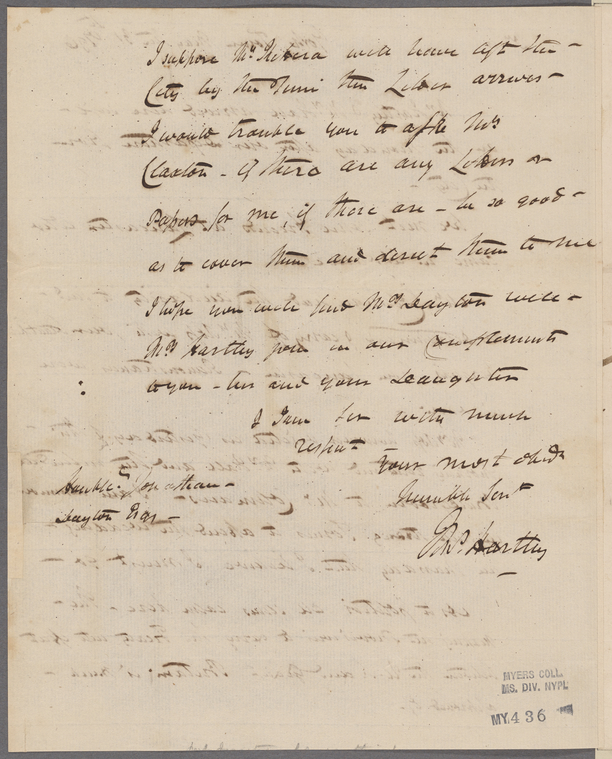 I suppose Mr. will have left the -
City by the Time this Letter arrives -
I would trouble you to aske Mr
Claxton - if there are any Letters or
Papers for me, if there are - be so good -
as to cover them and direct them to me
I hope you will find Mrs Dayton well -
Mrs Hartley join in our Compliments
to you - her and your Daughter
I am Sir with much
respect
Your most obedt
Humble Servt
Thos. Hartley
Honble. Jonathan -
Dayton Esqr -
MYERS COLL.
MS. DIV. NYPL
MY. 436